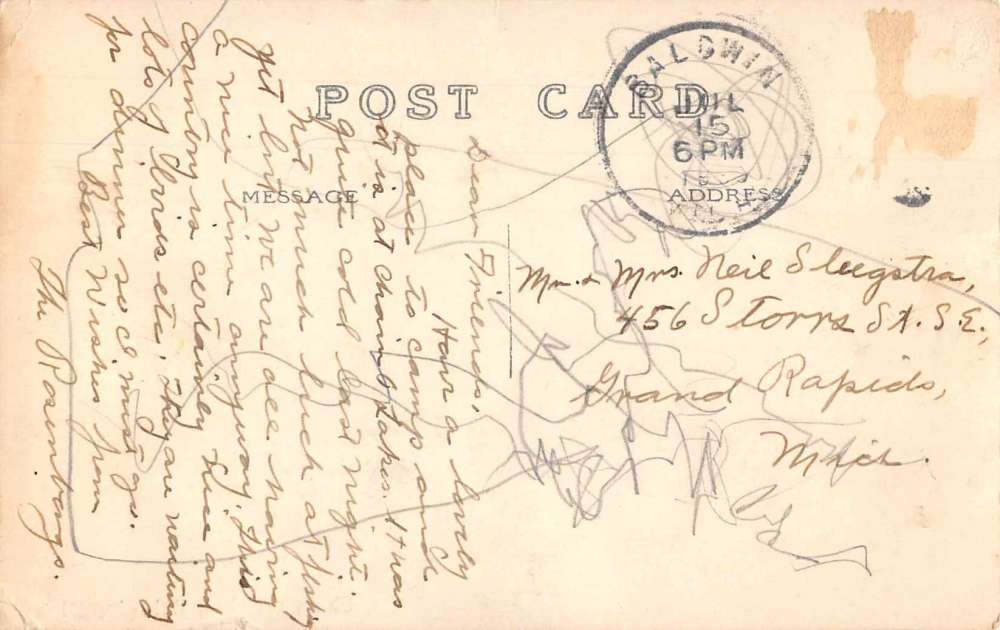 POST CARD
MESSAGE
ADDRESS
BALDWIN
JUL
15
6 PM
Dear Friends,
Have a lovely
place to camp and
it is at Chain O Lakes. It was
quite cold last night.
Not much luck at fishing
yet but we are all having
a nice time anyway. This
country is certainly nice and
lots of birds etc. They are waiting
for dinner so I must go.
Best Wishes from
The Rosenbergs.
Mr. & Mrs. Neil Sleegstra,
456 Storrs St. S.E.,
Grand Rapids,
Mich.